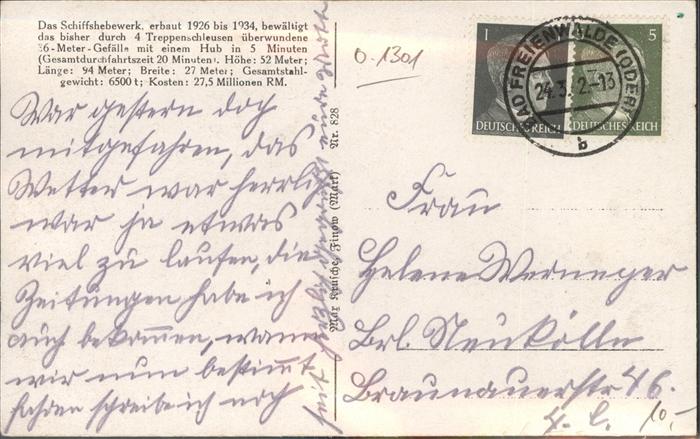 Das Schiffshebewerk, erbaut 1926 bis 1934, bewältigt
das bisher durch 4 Treppenschleusen überwundene
36-Meter-Gefälle mit einem Hub in 5 Minuten
(Gesamtdurchfahrtszeit 20 Minuten). Höhe: 52 Meter;
Länge: 94 Meter; Breite: 27 Meter; Gesamtstahl-
gewicht: 6500 t; Kosten: 27,5 Millionen RM.
War gestern doch
mitgefahren, das
Wetter war herrlich
war ja etwas
viel zu laufen, die
Zeitungen habe ich
auch bekommen, wann
wir nun bestimmt
fahren schreibe ich noch
seid herzlich gegrüßt
Max Krusche, Finow (Mark) Nr. 828
0.1301
1
5
DEUTSCHES REICH
DEUTSCHES REICH
BAD FREIENWALDE (ODER)
24.3. 2.-13
b
Frau
Helene
Brl. Neukölln
Braunauerstr 46.
10,-